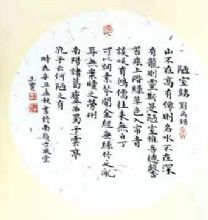 陋室銘 劉禹錫
山不在高有僊則名水不在深
有龍則靈斯是陋室惟吾德馨
苔痕上階綠草色入簾青
談笑有鴻儒往來無白丁
可以調素琴閱金經無絲竹之亂
耳無案牘之勞形
南陽諸葛廬西蜀子雲亭
孔子云何陋之有
辛丑 秋書於